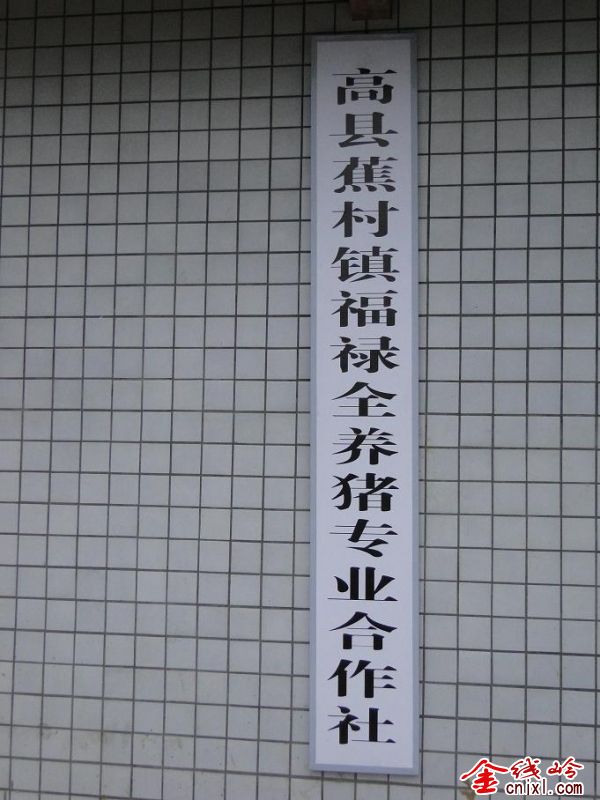 高县蕉村镇福禄全养猪专业合作社
金线岭
cnjxl.com